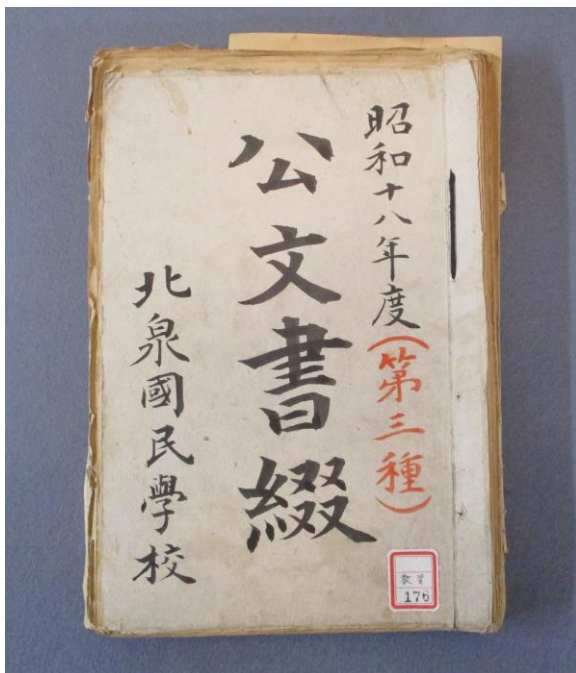 昭和十八年度(第三種)
公文書綴
北泉國民學校
教育
176